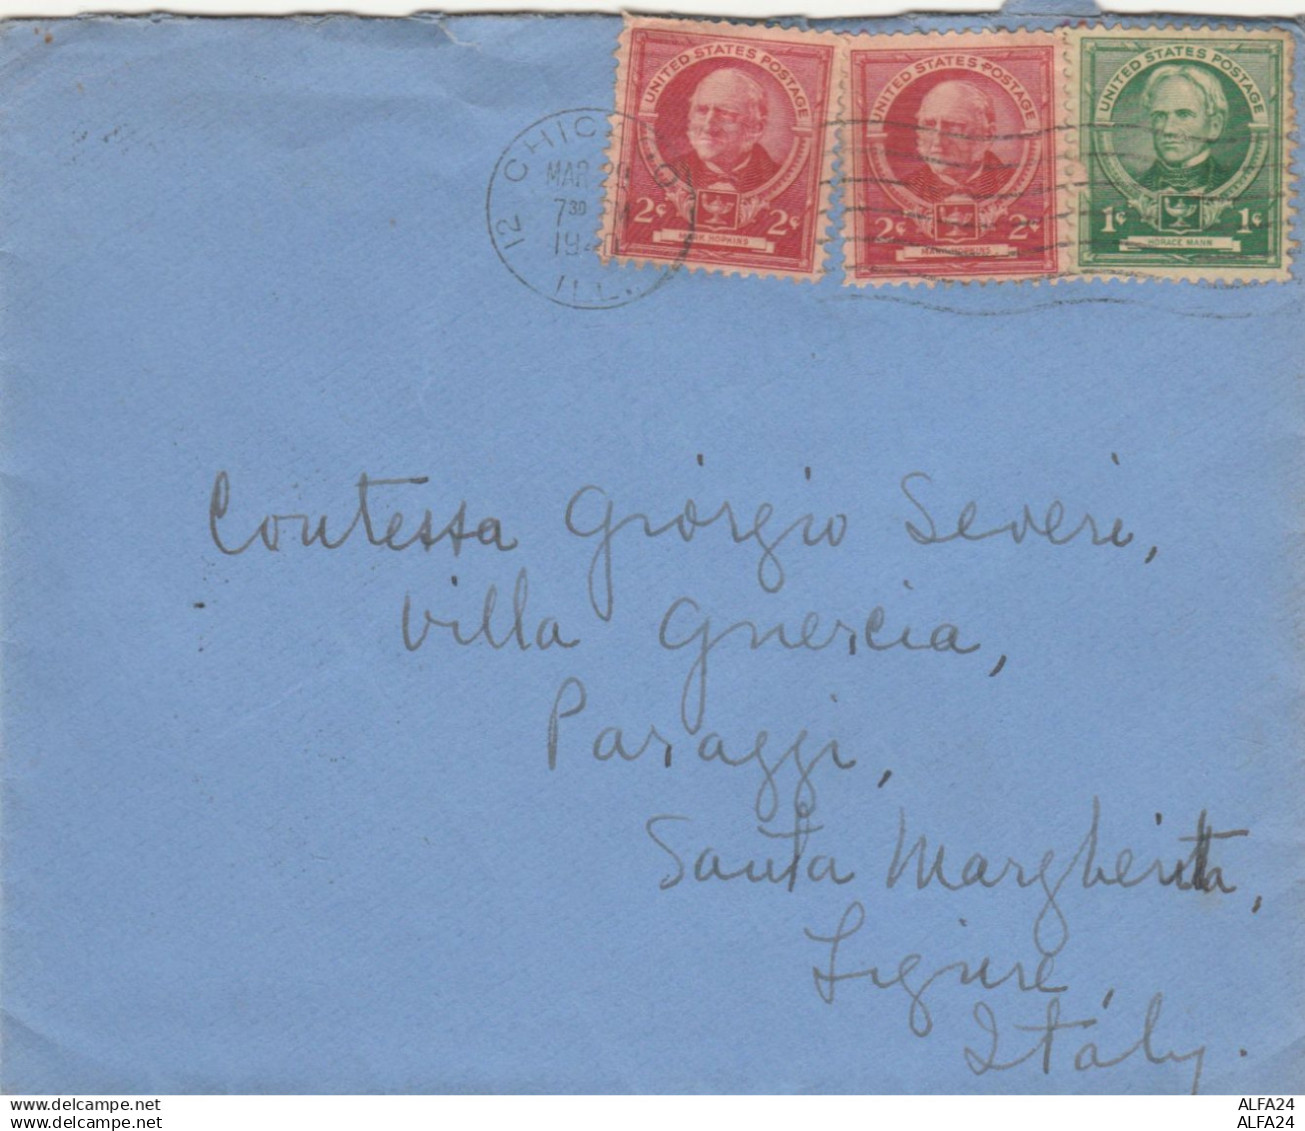 UNITED STATES POSTAGE
2¢ 2¢
MARK HOPKINS
UNITED STATES POSTAGE
2¢ 2¢
MARK HOPKINS
UNITED STATES POSTAGE
1¢ 1¢
HORACE MANN
12 CHICAGO
MAR
7 30
ILL.
Contessa Giorgio Severi,
Villa Guercia,
Paraggi,
Santa Margherita,
Ligure,
Italy.
www.delcampe.net
ALFA24
www.delcampe.net
ALFA24